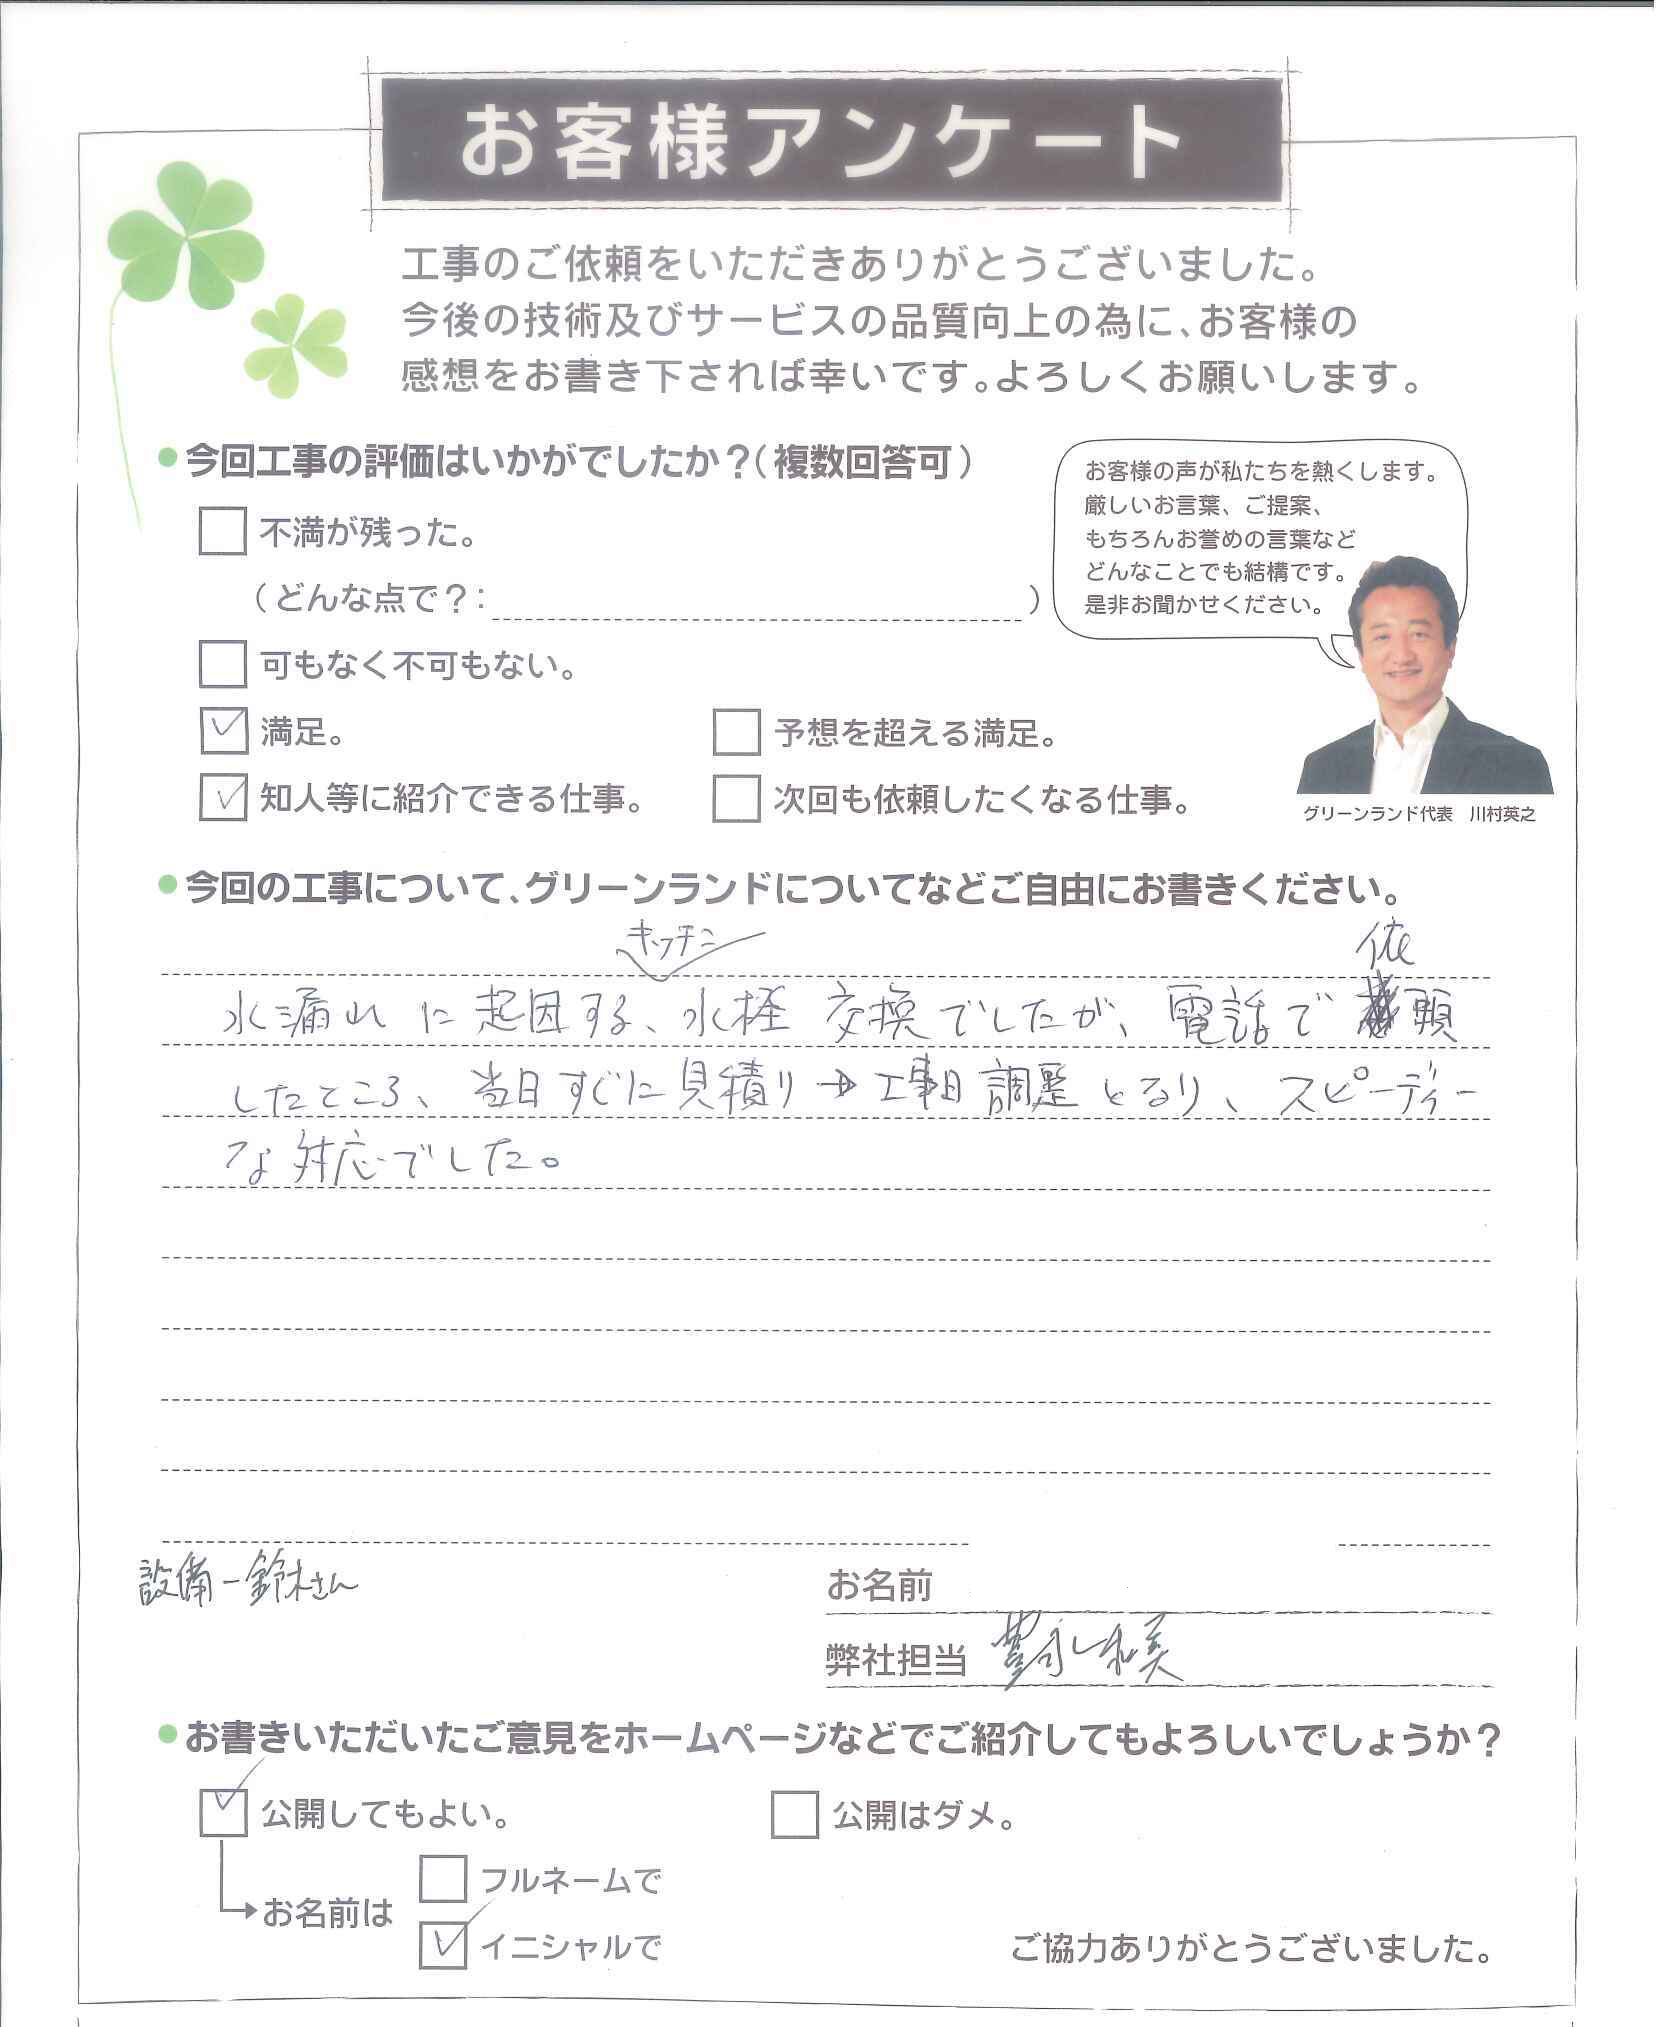 お客様アンケート
工事のご依頼をいただきありがとうございました。
今後の技術及びサービスの品質向上の為に、お客様の
感想をお書き下されば幸いです。よろしくお願いします。
今回工事の評価はいかがでしたか？（複数回答可）
不満が残った。
（どんな点で？：　）
可もなく不可もない。
満足。
予想を超える満足。
知人等に紹介できる仕事。
次回も依頼したくなる仕事。
お客様の声が私たちを熱くします。
厳しいお言葉、ご提案、
もちろんお誉めの言葉など
どんなことでも結構です。
是非お聞かせください。
グリーンランド代表　川村英之
今回の工事について、グリーンランドについてなどご自由にお書きください。
キッチン
依
水漏れに起因する、水栓交換でしたが、電話で頼
したところ、当日すぐに見積り→工事日調整となり、スピーディー
な対応でした。
設備-鈴木さん
お名前
弊社担当
お書きいただいたご意見をホームページなどでご紹介してもよろしいでしょうか？
公開してもよい。
公開はダメ。
お名前は
フルネームで
イニシャルで
ご協力ありがとうございました。